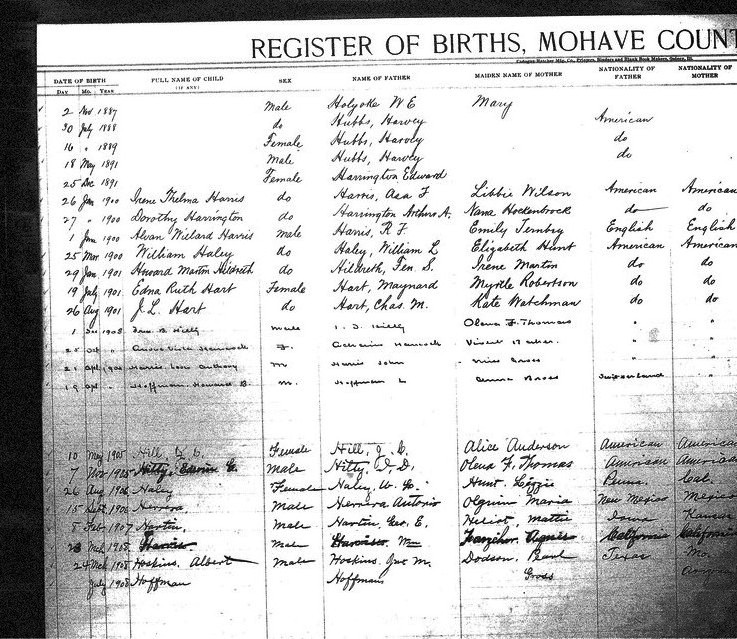 REGISTER OF BIRTHS, MOHAVE COUNT
DATE OF BIRTH FULL NAME OF CHILD (IF ANY) SEX NAME OF FATHER MAIDEN NAME OF MOTHER NATIONALITY OF FATHER NATIONALITY OF MOTHER
DAY MO. YEAR
2 Nov 1887 Male Holyoke W E Mary
30 July 1888 do Hubbs, Harvey American
16 " 1889 Female Hubbs, Harvey do
18 May 1891 Male Hubbs, Harvey do
25 Dec 1891 Female Harrington Edward
26 Jan 1900 Irene Thelma Harris do Harris, Asa F Libbie Wilson American American
27 " 1900 Dorothy Harrington do Harrington Arthur A. Nana Hockenbrock do do
1 June 1900 Alvan Willard Harris Male Harris, R F Emily English English
25 Mar 1900 William Haley do Haley, William L Elizabeth Hunt American American
29 Jan 1901 Howard Martin Hildreth do Hildreth, Fen. S. Irene Martin do do
19 July 1901 Edna Ruth Hart Female Hart, Maynard Myrtle Robertson do do
26 Aug 1901 J. L. Hart do Hart, Chas. M. Kate Watchman do do
1 Male Olena F. Thomas " "
25 Oct " Hancock F. Hancock " "
21 Apl Harris, Anthony M Harris John " "
19 Apl " Hoffman, Howard B. M. Hoffman L Anna Gross Switzerland "
10 May 1905 Hill, J. C. Female Hill, J. C. Alice Anderson American American
7 Nov 1905 Hitty, Male Hitty, I. D. Olena F. Thomas American American
26 Aug 1906 Haley Female Haley, W. Hunt, Lizzie Penna. Cal.
15 Sept 1906 Herrera Male Herrera Antonio Olguin Maria New Mexico Mexico
8 Feb 1907 Male Geo. E. Mattie Iowa Kansas
Mch 1908 Harris Male Agnes California California
24 Mch 1908 Hoskins, Albert Male Hoskins, M. Dodson, Pearl Texas Mo.
July 1908 Hoffman Hoffman Gross